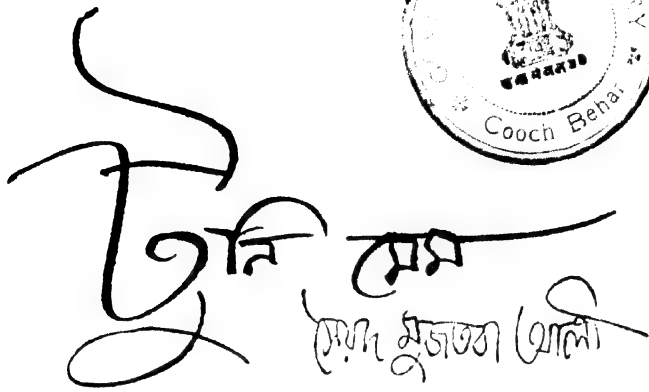 Cooch Behar
টুনি মেম
সৈয়দ মুজতবা আলী